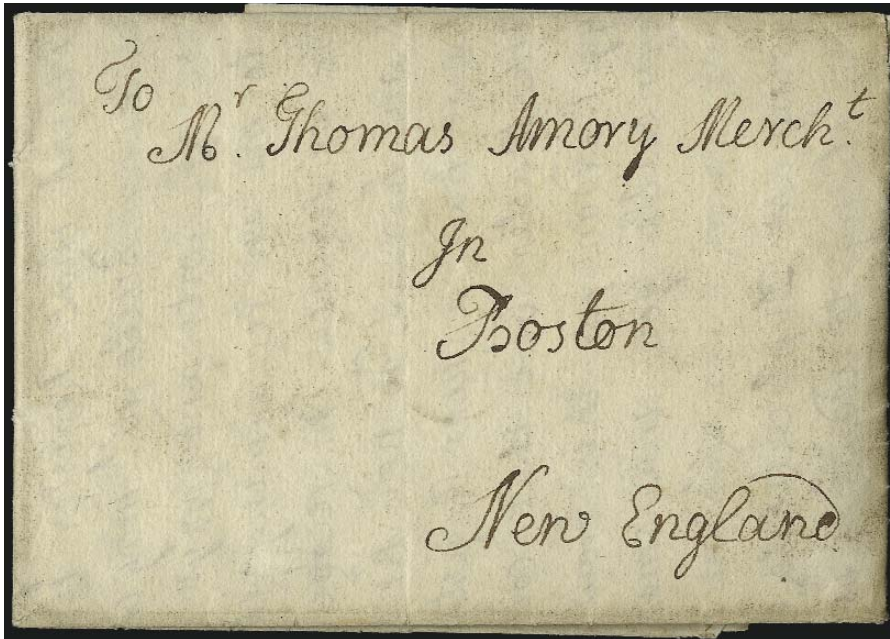 To
Mr. Thomas Amory Mercht.
In
Boston
New England